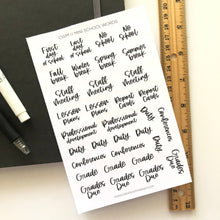 MINI SCHOOL WORDS
First day of school
Last day of school
No School
No School
Fall Break
Winter break
Spring break
Summer break
Staff Meeting
Staff Meeting
Staff Meeting
Lesson Plans
Lesson Plans
Report Cards
Report Cards
Professional development
Professional development
PTA Mtg
Conferences
Duty
Duty
Duty
Duty
Conferences
Conferences
Grade
Grade
Grade
Grades Due
Grades Due
Grades Due